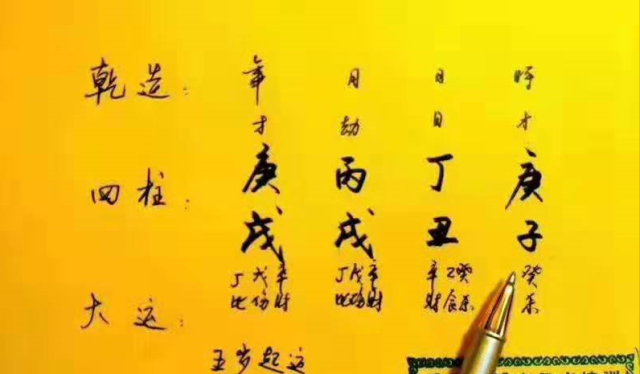 乾造： 年 月 日 时
才 劫 日 才
四柱： 庚 丙 丁 庚
戌 戌 丑 子
丁戊辛 丁戊辛 辛己癸 癸
比伤财 比伤财 财食杀 杀
大运：
五岁起运